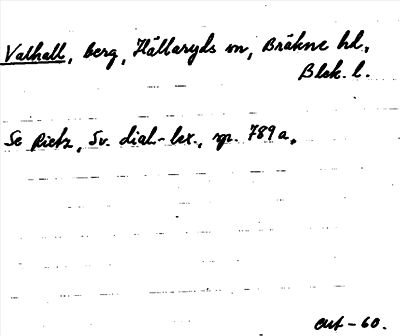 Valhall, berg, Hällaryds sn, Bräkne hd.,
Blek. l.
Se Rietz, Sv. dial.-lex., sp. 789 a.